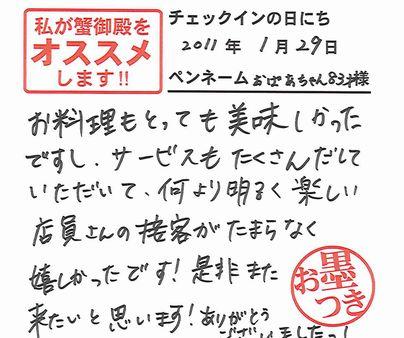 私が蟹御殿を
オススメ
します!!
チェックインの日にち
2011 年 1 月 29 日
ペンネーム おばあちゃん83才 様
お料理もとっても美味しかった
ですし、サービスもたくさんだして
いただいて、何より明るく楽しい
店員さんの接客がたまらなく
嬉しかったです!是非また
来たいと思います!ありがとう
ございましたっ!
お墨つき